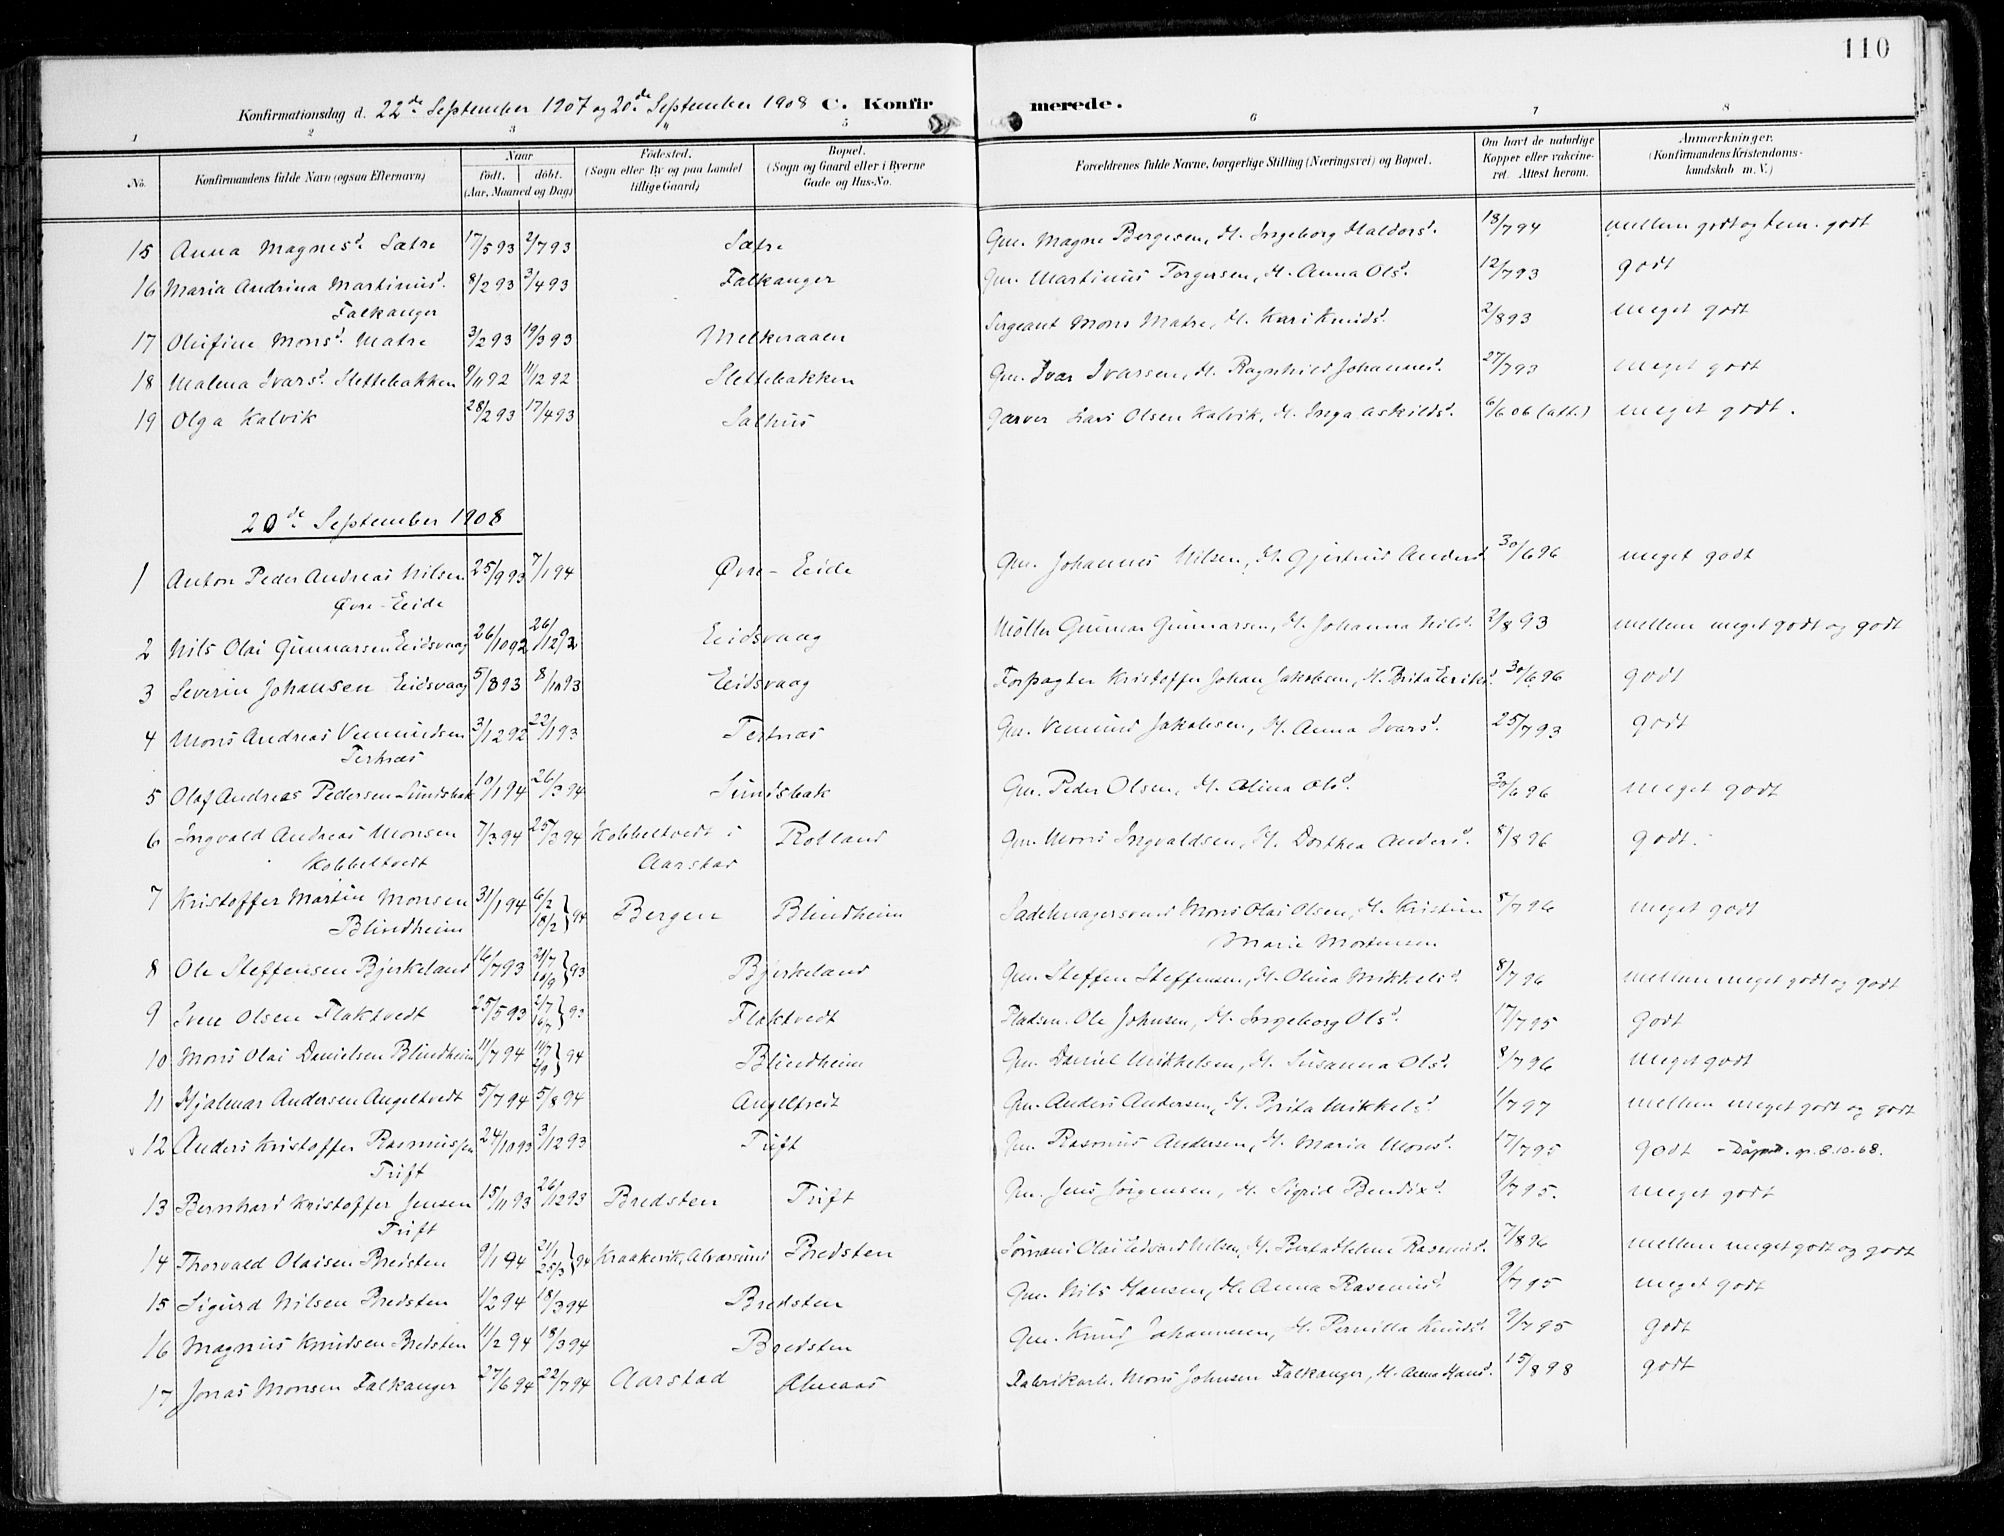 110
Konfirmationsdag d. 22de September 1907 og 20de September 1908 C. Konfirmerede.
1 2 3 5 6 7 8
No. Konfirmandens fulde Navn (ogsaa Efternavn) Naar født. døbt. (Aar, Maaned og Dag) Fødested. (Sogn eller By og paa Landet tillige Gaard) Bopæl. (Sogn og Gaard eller i Byerne Gade og Hus-No. Forældrenes fulde Navne, borgerlige Stilling (Næringsvei) og Bopæl. Om havt de naturlige Kopper eller vakcineret. Attest herom. Anmærkninger. (Konfirmandens Kristendomskundskab m. V.)
15 Anna Magnesd. Sætre 17/5 93 2/7 93 Sætre Gm. Magne Børgesen, H. Ingeborg Haldorsd. 18/7 94 mellem godt og tem. godt
16 Maria Andrina Martinusd. 8/2 93 3/4 93 Falkanger Gm. Martinus Torgersen, H. Anna Olsd. 12/7 93 godt
Falkanger
17 Olufine Monsd. Matre 3/2 93 19/3 93 Melkeraaen Sergeant Mons Matre, H. Kari Knudsd. 2/8 93 meget godt
18 Malena Ivarsd. Slettebakken 9/11 92 11/12 92 Slettebakken Gm. Ivar Ivarsen, H. Ragnhild Johannesd. 27/7 93 meget godt
19 Olga Kalvik 28/2 93 17/4 93 Salhus Garver Lars Olsen Kalvik, H. Inga Askildsd. 6/6 06 (att.) meget godt.
20de September 1908
1 Anton Peder Andreas Nilsen 25/9 93 7/1 94 Øvre-Eide Gm. Johannes Nilsen, H. Gjertrud Andersd. 30/6 96 meget godt
Øvre-Eide
2 Nils Olai Gunnarsen Eidsvaag 26/10 92 26/12 92 Eidsvaag Møller Gunnar Gunnarsen, H. Johanna Nilsd. 2/8 93 mellem meget godt og godt
3 Severin Johansen Eidsvaag 5/8 93 8/10 93 Eidsvaag Forpagter Kristoffer Johan Jakobsen, H. Brita Eriksd. 30/6 96 godt
4 Mons Andreas Vemundsen 3/12 92 22/1 93 Tertnæs Gm. Vemund Jakobsen, H. Anna Ivarsd. 25/7 93 godt
Tertnæs
5 Olaf Andreas Pedersen Sundsbak 10/1 94 26/3 94 Sundsbak Gm. Peder Olsen, H. Alina Olsd. 30/6 96 meget godt
6 Ingvald Andreas Monsen 7/3 94 25/3 94 Kobbeltvedt i Rolland Gm. Mons Ingvaldsen, H. Dorthea Andersd. 8/8 96 godt.
Kobbeltvedt Aarstad
7 Kristoffer Martin Monsen 31/1 94 6/2 18/2 } 94 Bergen Blindheim Sadelmagersvend Mons Olai Olsen, H. Kristine 8/7 96 meget godt
Blindheim Marie Mortensen
8 Ole Steffensen Bjerkeland 16/7 93 21/7 10/9 } 93 Bjerkeland Gm. Steffen Steffensen, H. Olina Mikkelsd. 8/7 96 mellem meget godt og godt
9 Sven Olsen Flaktvedt 25/5 93 2/7 16/7 } 93 Flaktvedt Pladsm. Ole Johnsen, H. Ingeborg Olsd. 17/7 95 Godt
10 Mons Olai Danielsen Blindheim 11/7 94 94 Blindheim Gm. Daniel Mikkelsen, H. Susanna Olsd. 8/7 96 meget godt
11 Hjalmar Andersen Angeltvedt 5/7 94 5/8 94 Angeltveit Gm. Anders Andersen, H. Brita Mikkelsd. 1/7 97 mellem meget godt og godt
12 Anders Kristoffer Rasmussen 24/10 93 3/12 93 Tuft Gm. Rasmus Andersen, H. Maria Monsd. 17/7 95 godt - 8.10.68.
Tuft
13 Bernhard Kristoffer Jensen 15/11 93 26/12 93 Bredsten Tuft Gm. Jens Jørgensen, H. Sigrid Bendixd. 9/7 95. meget godt
Tuft
14 Thorvald Olaisen Bredsten 9/1 94 21/1 25/3 } 94 Kraakevik, Alversund Bredsten Sømand Olai Edvard Nilsen, H. Berta Helene Rasmusd. 7/8 96 mellem meget godt og godt
15 Sigurd Nilsen Bredsten 1/2 94 18/3 94 Bredsten Gm. Nils Hansen, H. Anna Rasmusd. 9/7 95 meget godt
16 Magnus Knudsen Bredsten 11/2 94 18/3 94 Bredsten Gm. Knud Johannesen, H. Pernilla Knudsd. 9/7 95 godt
17 Jonas Monsen Falkanger 27/6 94 22/7 94 Aarstad Almaas Fabrikarb. Mons Johnsen Falkanger, H. Anna Hansd. 15/8 98 godt